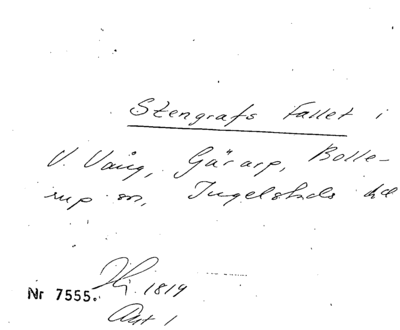 Stengrafs Fallet i
V. Vång, Gärarp, Bolle-
rup sn, Ingelstads hd
Nr 7555.
1819